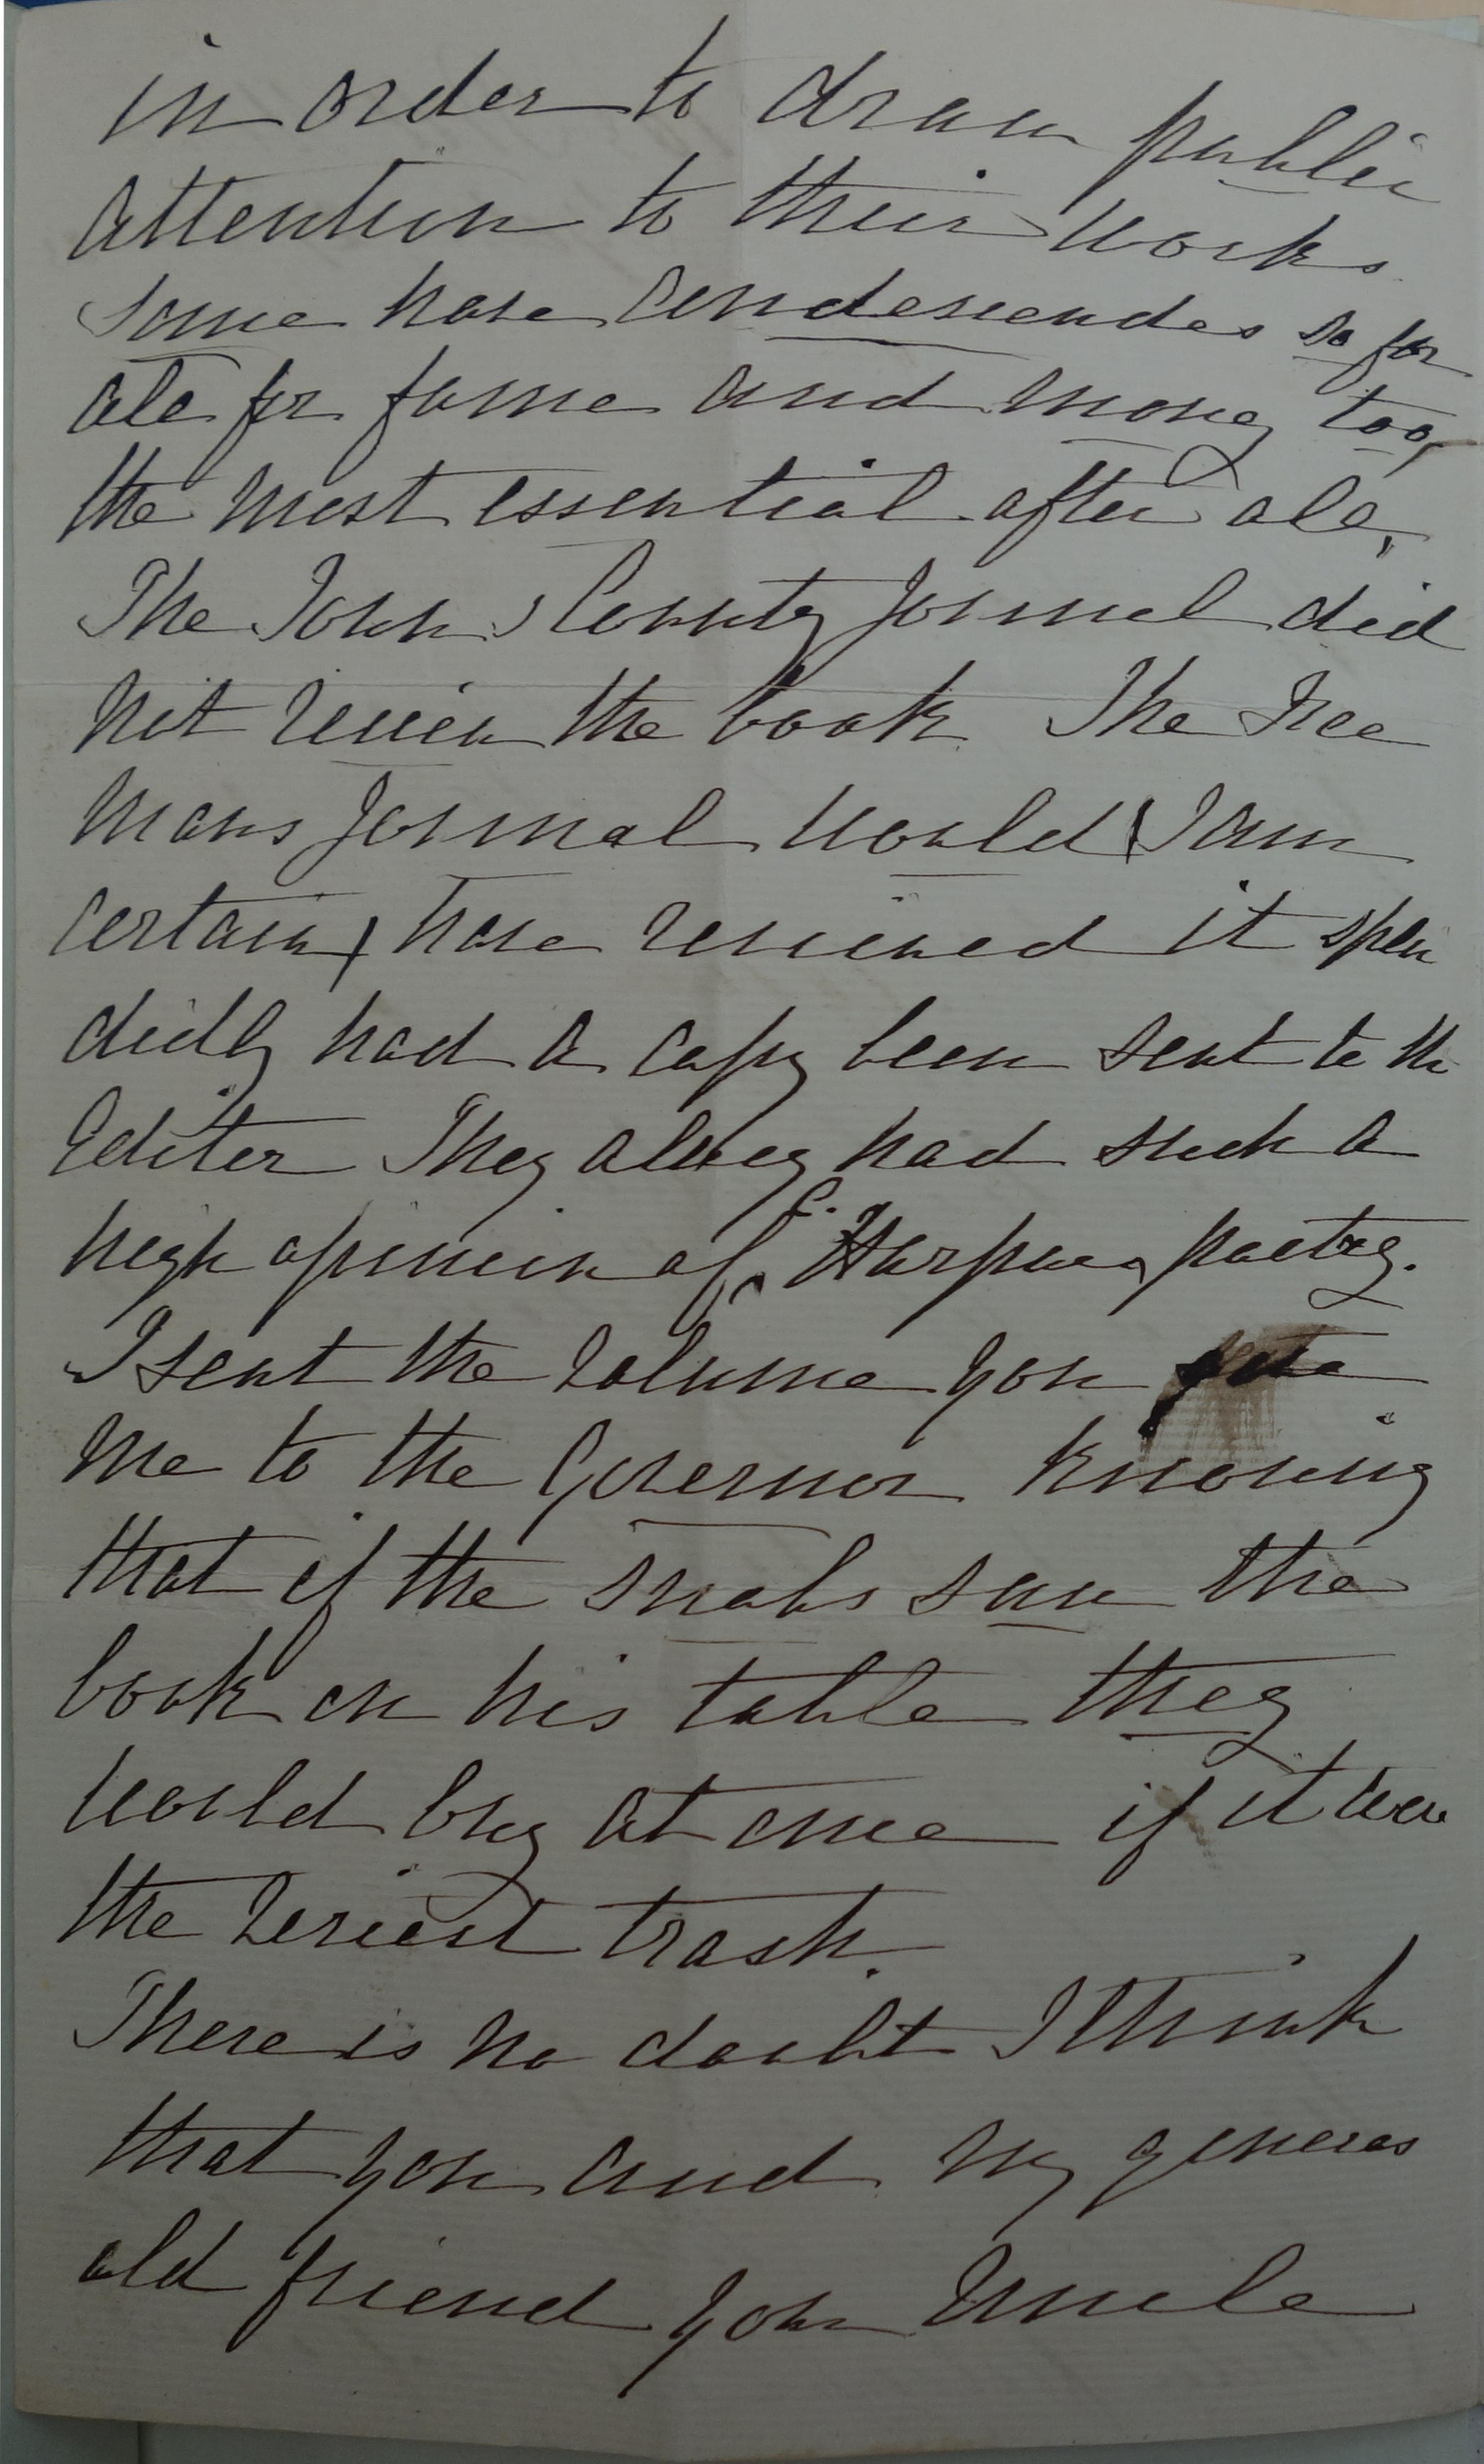 in order to draw public
attention to their works
some have condescended so far
all for fame and money too,
the most essential after all,
The Town & County Journal did
not review the book The Free
mans Journal would (I am
certain) have reviewed it splen
didly had a copy been sent to the
Editor They always had such a
high opinion of C. Harpurs poetry.
I sent the volume you gave
me to the Governor knowing
that if the snobs saw the
book on his table they
would buy at once if it were
the veriest trash.
There is no doubt I think
that you and my generous
old friend your Uncle